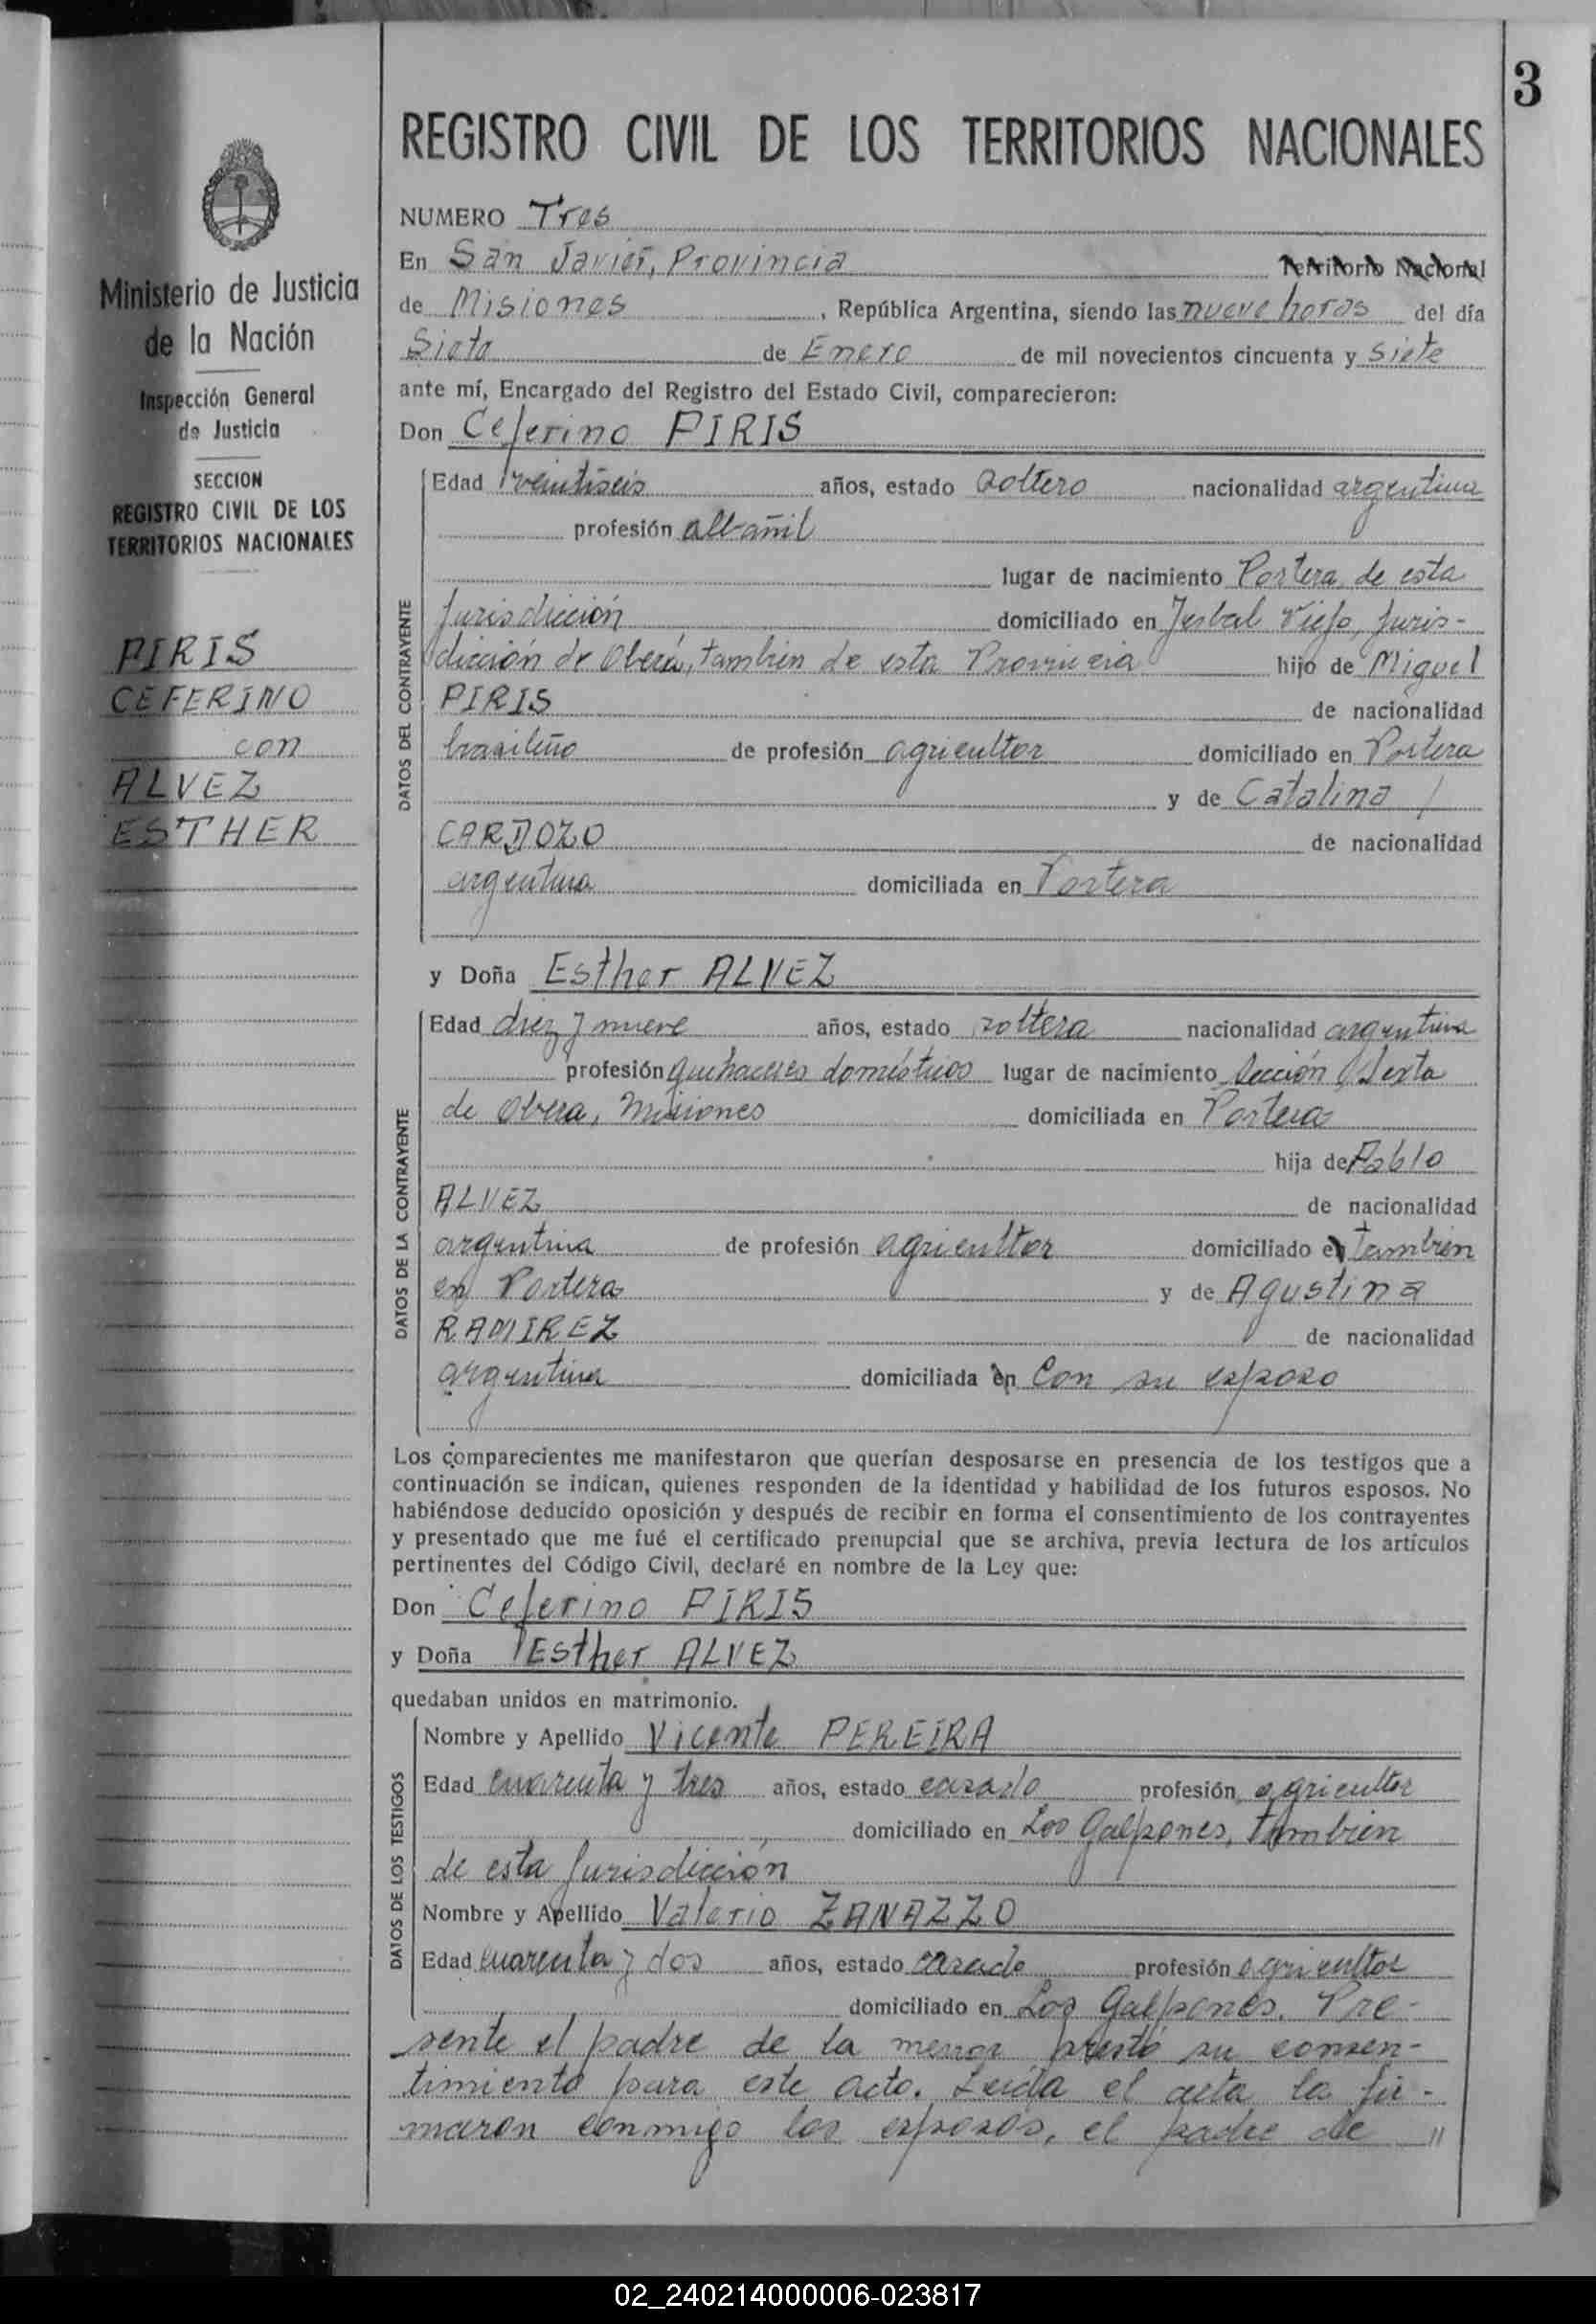 3
REGISTRO CIVIL DE LOS TERRITORIOS NACIONALES
Ministerio de Justicia
de la Nación
Inspección General
de Justicia
SECCION
REGISTRO CIVIL DE LOS
TERRITORIOS NACIONALES
PIRIS
CEFERINO
con
ALVEZ
ESTHER
NUMERO Tres
En San Javier, Provincia Territorio Nacional
de Misiones, República Argentina, siendo las nueve horas del día
Siete de Enero de mil novecientos cincuenta y siete
ante mí, Encargado del Registro del Estado Civil, comparecieron:
Don Ceferino PIRIS
DATOS DEL CONTRAYENTE
Edad veintiseis años, estado soltero nacionalidad argentina
profesión albañil
lugar de nacimiento Portera de esta
Jurisdicción domiciliado en Yerbal Viejo, Juris-
dicción de Oberá, tambien de esta Provincia hijo de Miguel
PIRIS de nacionalidad
brasileño de profesión agricultor domiciliado en Portera
y de Catalina /
CARDOZO de nacionalidad
argentina domiciliada en Portera
y Doña Esther ALVEZ
DATOS DE LA CONTRAYENTE
Edad diez y nueve años, estado soltera nacionalidad argentina
profesión quehaceres domésticos lugar de nacimiento Sección Sexta
de Obera, Misiones domiciliada en Portera
hija de Pablo
ALVEZ de nacionalidad
argentina de profesión agricultor domiciliado en tambien
en Portera y de Agustina
RAMIREZ de nacionalidad
argentina domiciliada en Con su esposo
Los comparecientes me manifestaron que querían desposarse en presencia de los testigos que a
continuación se indican, quienes responden de la identidad y habilidad de los futuros esposos. No
habiéndose deducido oposición y después de recibir en forma el consentimiento de los contrayentes
y presentado que me fué el certificado prenupcial que se archiva, previa lectura de los artículos
pertinentes del Código Civil, declaré en nombre de la Ley que:
Don Ceferino PIRIS
y Doña Esther ALVEZ
quedaban unidos en matrimonio.
DATOS DE LOS TESTIGOS
Nombre y Apellido Vicente PEREIRA
Edad cuarenta y tres años, estado casado profesión agricultor
domiciliado en Los Galpones, tambien
de esta Jurisdicción
Nombre y Apellido Valerio ZANAZZO
Edad cuarenta y dos años, estado casado profesión agricultor
domiciliado en Los Galpones. Pre-
sente el padre de la menor prestó su consen-
timiento para este acto. Leída el acta la fir-
maron conmigo los esposos, el padre de "
02_240214000006-023817